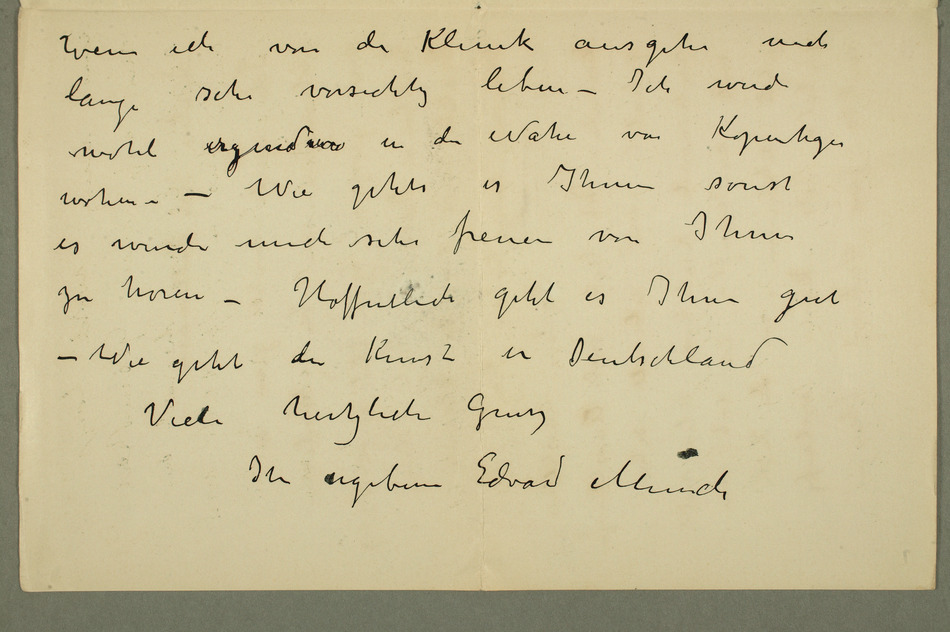 Wenn ich von der Klinik ausgehe muss
lange sehr vorsichtig leben – Ich werde
wohl irgendwo in der Nähe von Kopenhagen
wohnen – – Wie geht es Ihnen sonst
es würde mich sehr freuen von Ihnen
zu hören – Hoffentlich geht es Ihnen gut
– Wie geht die Kunst in Deutschland
Viele hertzliche Grusz
Ihr ergebene Edvard Munch